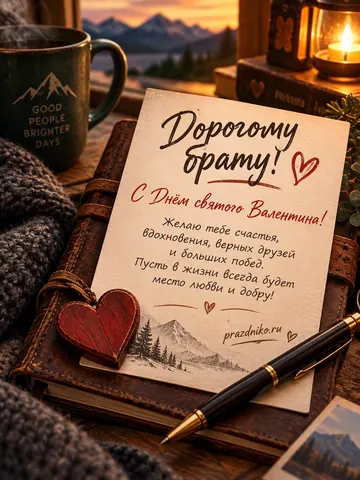 GOOD
PEOPLE
BRIGHTER
DAYS
Дорогому
брату!
С Днём святого Валентина!
Желаю тебе счастья,
вдохновения, верных друзей
и больших побед.
Пусть в жизни всегда будет
место любви и добру!
prazdniko.ru